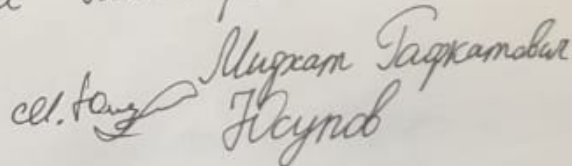 Мидхат Гафкатович
М. Юсу
Юсупов